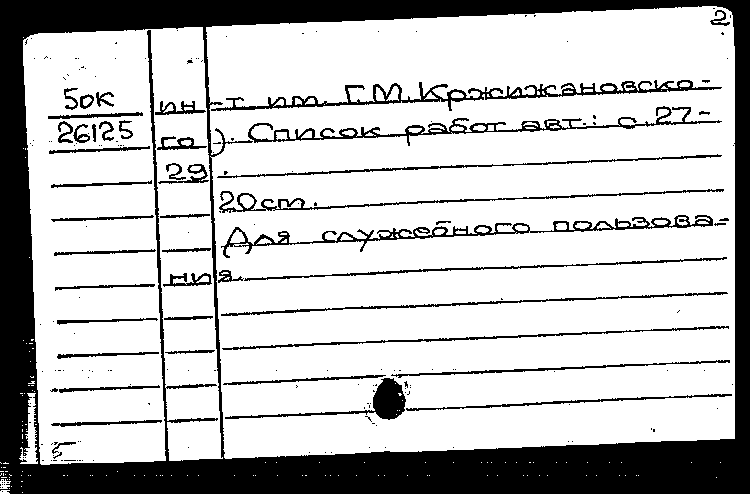 2
5ок ин-т им. Г.М.Кржижановско-
26125 го). Список работ авт.: с.27-
29.
20см.
Для служебного пользова-
ния.
5